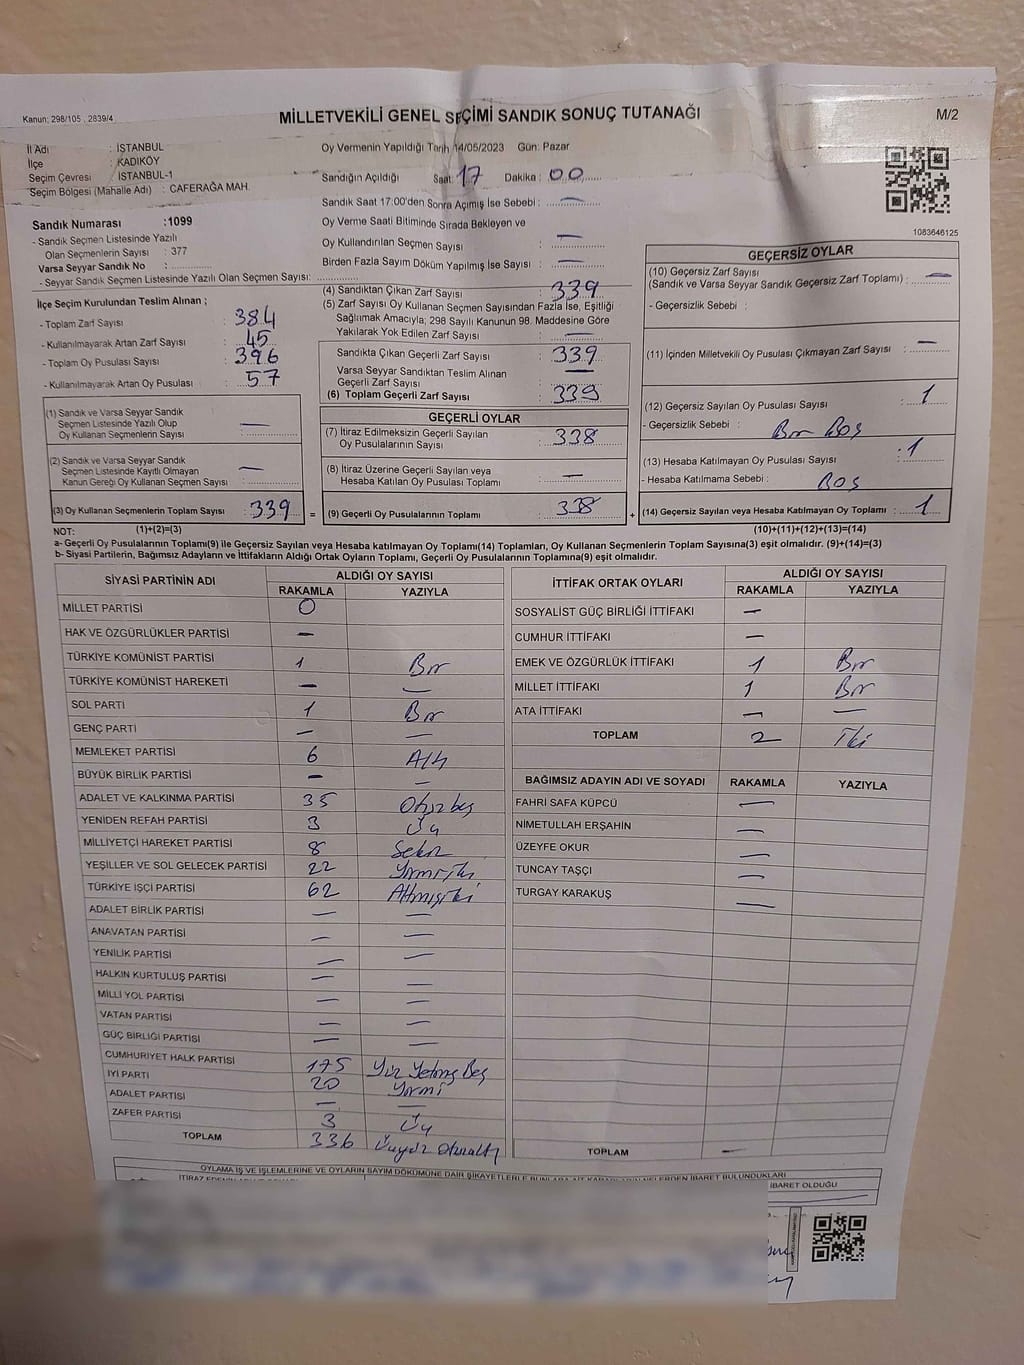 Kanun: 298/105 , 2839/4
MİLLETVEKİLİ GENEL SEÇİMİ SANDIK SONUÇ TUTANAĞI
M/2
İl Adı : İSTANBUL
İlçe : KADIKÖY
Seçim Çevresi : İSTANBUL-1
Seçim Bölgesi (Mahalle Adı) : CAFERAĞA MAH.
Oy Vermenin Yapıldığı Tarih 14/05/2023 Gün: Pazar
Sandığın Açıldığı Saat: 17 Dakika : 00
Sandık Saat 17:00'den Sonra Açımış İse Sebebi : —
Oy Verme Saati Bitiminde Sırada Bekleyen ve
Oy Kullandırılan Seçmen Sayısı : —
Birden Fazla Sayım Döküm Yapılmış İse Sayısı : —
1083646125
Sandık Numarası :1099
- Sandık Seçmen Listesinde Yazılı
Olan Seçmenlerin Sayısı : 377
Varsa Seyyar Sandık No :
- Seyyar Sandık Seçmen Listesinde Yazılı Olan Seçmen Sayısı:
İlçe Seçim Kurulundan Teslim Alınan ;
- Toplam Zarf Sayısı : 384
- Kullanılmayarak Artan Zarf Sayısı : 45
- Toplam Oy Pusulası Sayısı : 396
- Kullanılmayarak Artan Oy Pusulası : 57
(1) Sandık ve Varsa Seyyar Sandık
Seçmen Listesinde Yazılı Olup
Oy Kullanan Seçmenlerin Sayısı : —
(2) Sandık ve Varsa Seyyar Sandık
Seçmen Listesinde Kayıtlı Olmayan
Kanun Gereği Oy Kullanan Seçmen Sayısı : —
(3) Oy Kullanan Seçmenlerin Toplam Sayısı : 339 =
(1)+(2)=(3)
(4) Sandıktan Çıkan Zarf Sayısı : 339
(5) Zarf Sayısı Oy Kullanan Seçmen Sayısından Fazla İse, Eşitliği
Sağlamak Amacıyla; 298 Sayılı Kanunun 98. Maddesine Göre
Yakılarak Yok Edilen Zarf Sayısı : —
Sandıkta Çıkan Geçerli Zarf Sayısı : 339
Varsa Seyyar Sandıktan Teslim Alınan
Geçerli Zarf Sayısı : —
(6) Toplam Geçerli Zarf Sayısı : 339
GEÇERLİ OYLAR
(7) İtiraz Edilmeksizin Geçerli Sayılan
Oy Pusulalarının Sayısı : 338
(8) İtiraz Üzerine Geçerli Sayılan veya
Hesaba Katılan Oy Pusulası Toplamı : —
(9) Geçerli Oy Pusulalarının Toplamı : 338 +
GEÇERSİZ OYLAR
(10) Geçersiz Zarf Sayısı
(Sandık ve Varsa Seyyar Sandık Geçersiz Zarf Toplamı) : —
- Geçersizlik Sebebi :
(11) İçinden Milletvekili Oy Pusulası Çıkmayan Zarf Sayısı : —
(12) Geçersiz Sayılan Oy Pusulası Sayısı : 1
- Geçersizlik Sebebi : Bir Boş
(13) Hesaba Katılmayan Oy Pusulası Sayısı : 1
- Hesaba Katılmama Sebebi : Boş
(14) Geçersiz Sayılan veya Hesaba Katılmayan Oy Toplamı : 1
(10)+(11)+(12)+(13)=(14)
NOT:
a- Geçerli Oy Pusulalarının Toplamı(9) ile Geçersiz Sayılan veya Hesaba katılmayan Oy Toplamı(14) Toplamları, Oy Kullanan Seçmenlerin Toplam Sayısına(3) eşit olmalıdır. (9)+(14)=(3)
b- Siyasi Partilerin, Bağımsız Adayların ve İttifakların Aldığı Ortak Oyların Toplamı, Geçerli Oy Pusulalarının Toplamına(9) eşit olmalıdır.
SİYASİ PARTİNİN ADI ALDIĞI OY SAYISI
RAKAMLA YAZIYLA
MİLLET PARTİSİ 0
HAK VE ÖZGÜRLÜKLER PARTİSİ —
TÜRKİYE KOMÜNİST PARTİSİ 1 Bir
TÜRKİYE KOMÜNİST HAREKETİ — —
SOL PARTİ 1 Bir
GENÇ PARTİ — —
MEMLEKET PARTİSİ 6 Altı
BÜYÜK BİRLİK PARTİSİ — —
ADALET VE KALKINMA PARTİSİ 35 Otuz beş
YENİDEN REFAH PARTİSİ 3 Üç
MİLLİYETÇİ HAREKET PARTİSİ 8 Sekiz
YEŞİLLER VE SOL GELECEK PARTİSİ 22 Yirmi iki
TÜRKİYE İŞÇİ PARTİSİ 62 Altmış iki
ADALET BİRLİK PARTİSİ — —
ANAVATAN PARTİSİ — —
YENİLİK PARTİSİ — —
HALKIN KURTULUŞ PARTİSİ — —
MİLLİ YOL PARTİSİ — —
VATAN PARTİSİ — —
GÜÇ BİRLİĞİ PARTİSİ — —
CUMHURİYET HALK PARTİSİ 175 Yüz Yetmiş Beş
İYİ PARTİ 20 Yirmi
ADALET PARTİSİ — —
ZAFER PARTİSİ 3 Üç
TOPLAM 336 Üçyüz Otuzaltı
İTTİFAK ORTAK OYLARI ALDIĞI OY SAYISI
RAKAMLA YAZIYLA
SOSYALİST GÜÇ BİRLİĞİ İTTİFAKI —
CUMHUR İTTİFAKI —
EMEK VE ÖZGÜRLÜK İTTİFAKI 1 Bir
MİLLET İTTİFAKI 1 Bir
ATA İTTİFAKI — —
TOPLAM 2 İki
BAĞIMSIZ ADAYIN ADI VE SOYADI RAKAMLA YAZIYLA
FAHRİ SAFA KÜPCÜ —
NİMETULLAH ERŞAHİN —
ÜZEYFE OKUR —
TUNCAY TAŞÇI —
TURGAY KARAKUŞ —
TOPLAM —
OYLAMA İŞ VE İŞLEMLERİNE VE OYLARIN SAYIM DÖKÜMÜNE DAİR ŞİKAYETLERLE BUNLARA AİT
İBARET OLDUĞU